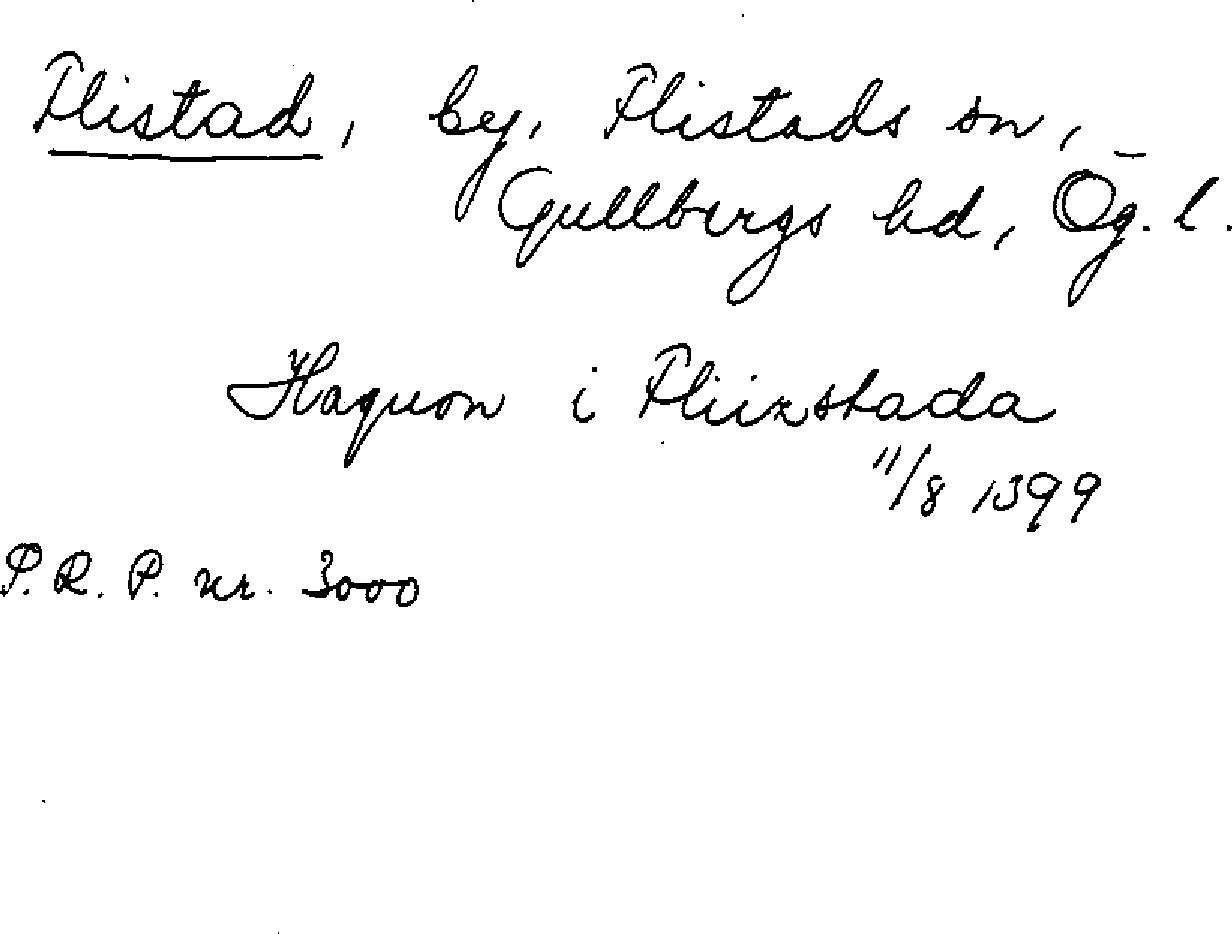 Flistad, by, Flistads sn,
Gullbergs hd, Ög. l.
Haquon i Fliizstada
11/8 1399
P. R. P. nr. 3000